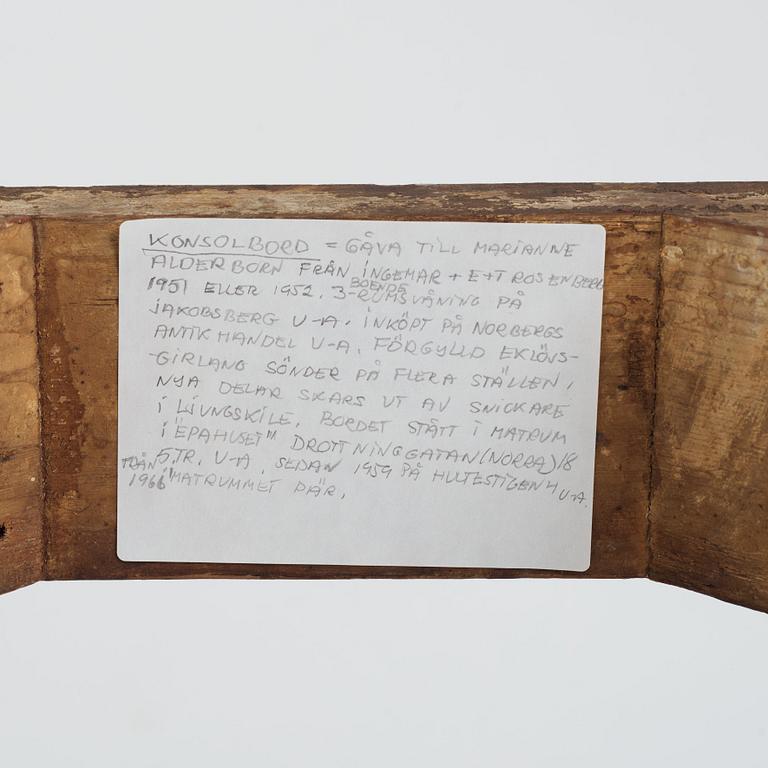 KONSOLBORD = GÅVA TILL MARIANNE
ALDERBORN FRÅN INGEMAR + E+T ROSENBERG
BOENDE
1951 ELLER 1952. 3-RUMSVÅNING PÅ
JAKOBSBERG U-A. INKÖPT PÅ NORBERGS
ANTIKHANDEL U-A. FÖRGYLLD EKLÖVS-
GIRLANG SÖNDER PÅ FLERA STÄLLEN,
NYA DELAR SKARS UT AV SNICKARE
I LJUNGSKILE. BORDET STÅTT I MATRUM
I "EPAHUSET" DROTTNINGGATAN (NORRA) 18
5.TR. U-A. SEDAN 1959 PÅ HULTESTIGEN 4 U-A.
FRÅN
1966 I MATRUMMET DÄR.